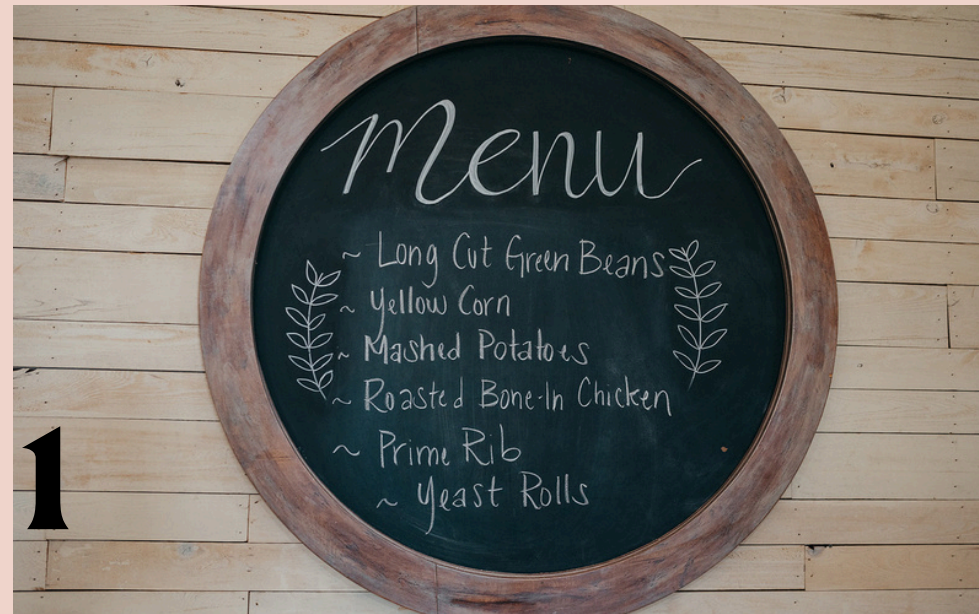 Menu
~ Long Cut Green Beans
~ Yellow Corn
~ Mashed Potatoes
~ Roasted Bone-In Chicken
~ Prime Rib
~ Yeast Rolls
1